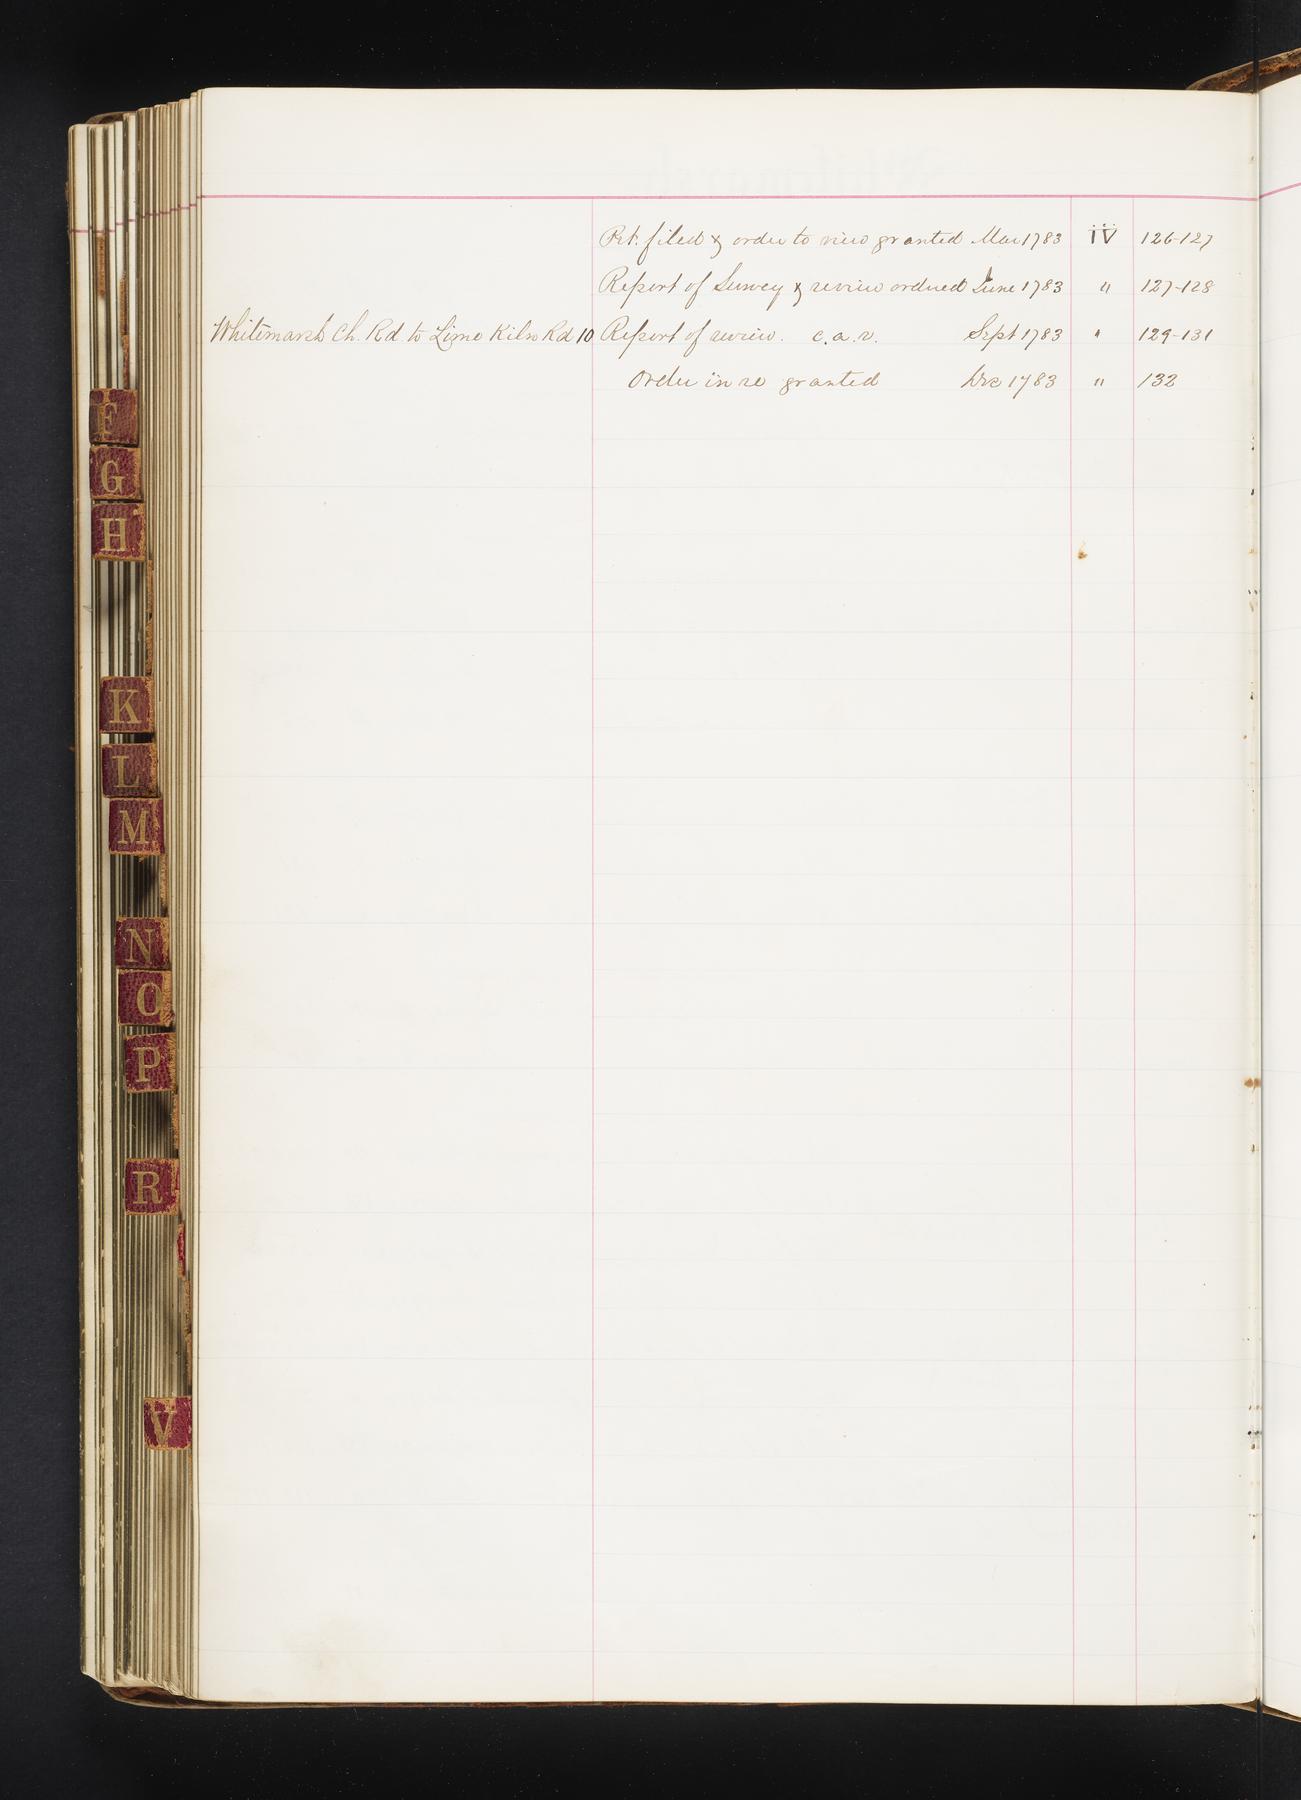 Pet. filed & order to view granted Mar 1783 IV 126-127
Report of Survey & review ordered June 1783 " 127-128
Whitemarsh Ch. Rd. to Lime Kiln Rd 10 Report of review. c.a.v. Sept 1783 " 129-131
Order in re granted Dec 1783 " 132
F
G
H
K
L
M
N
O
P
R
V